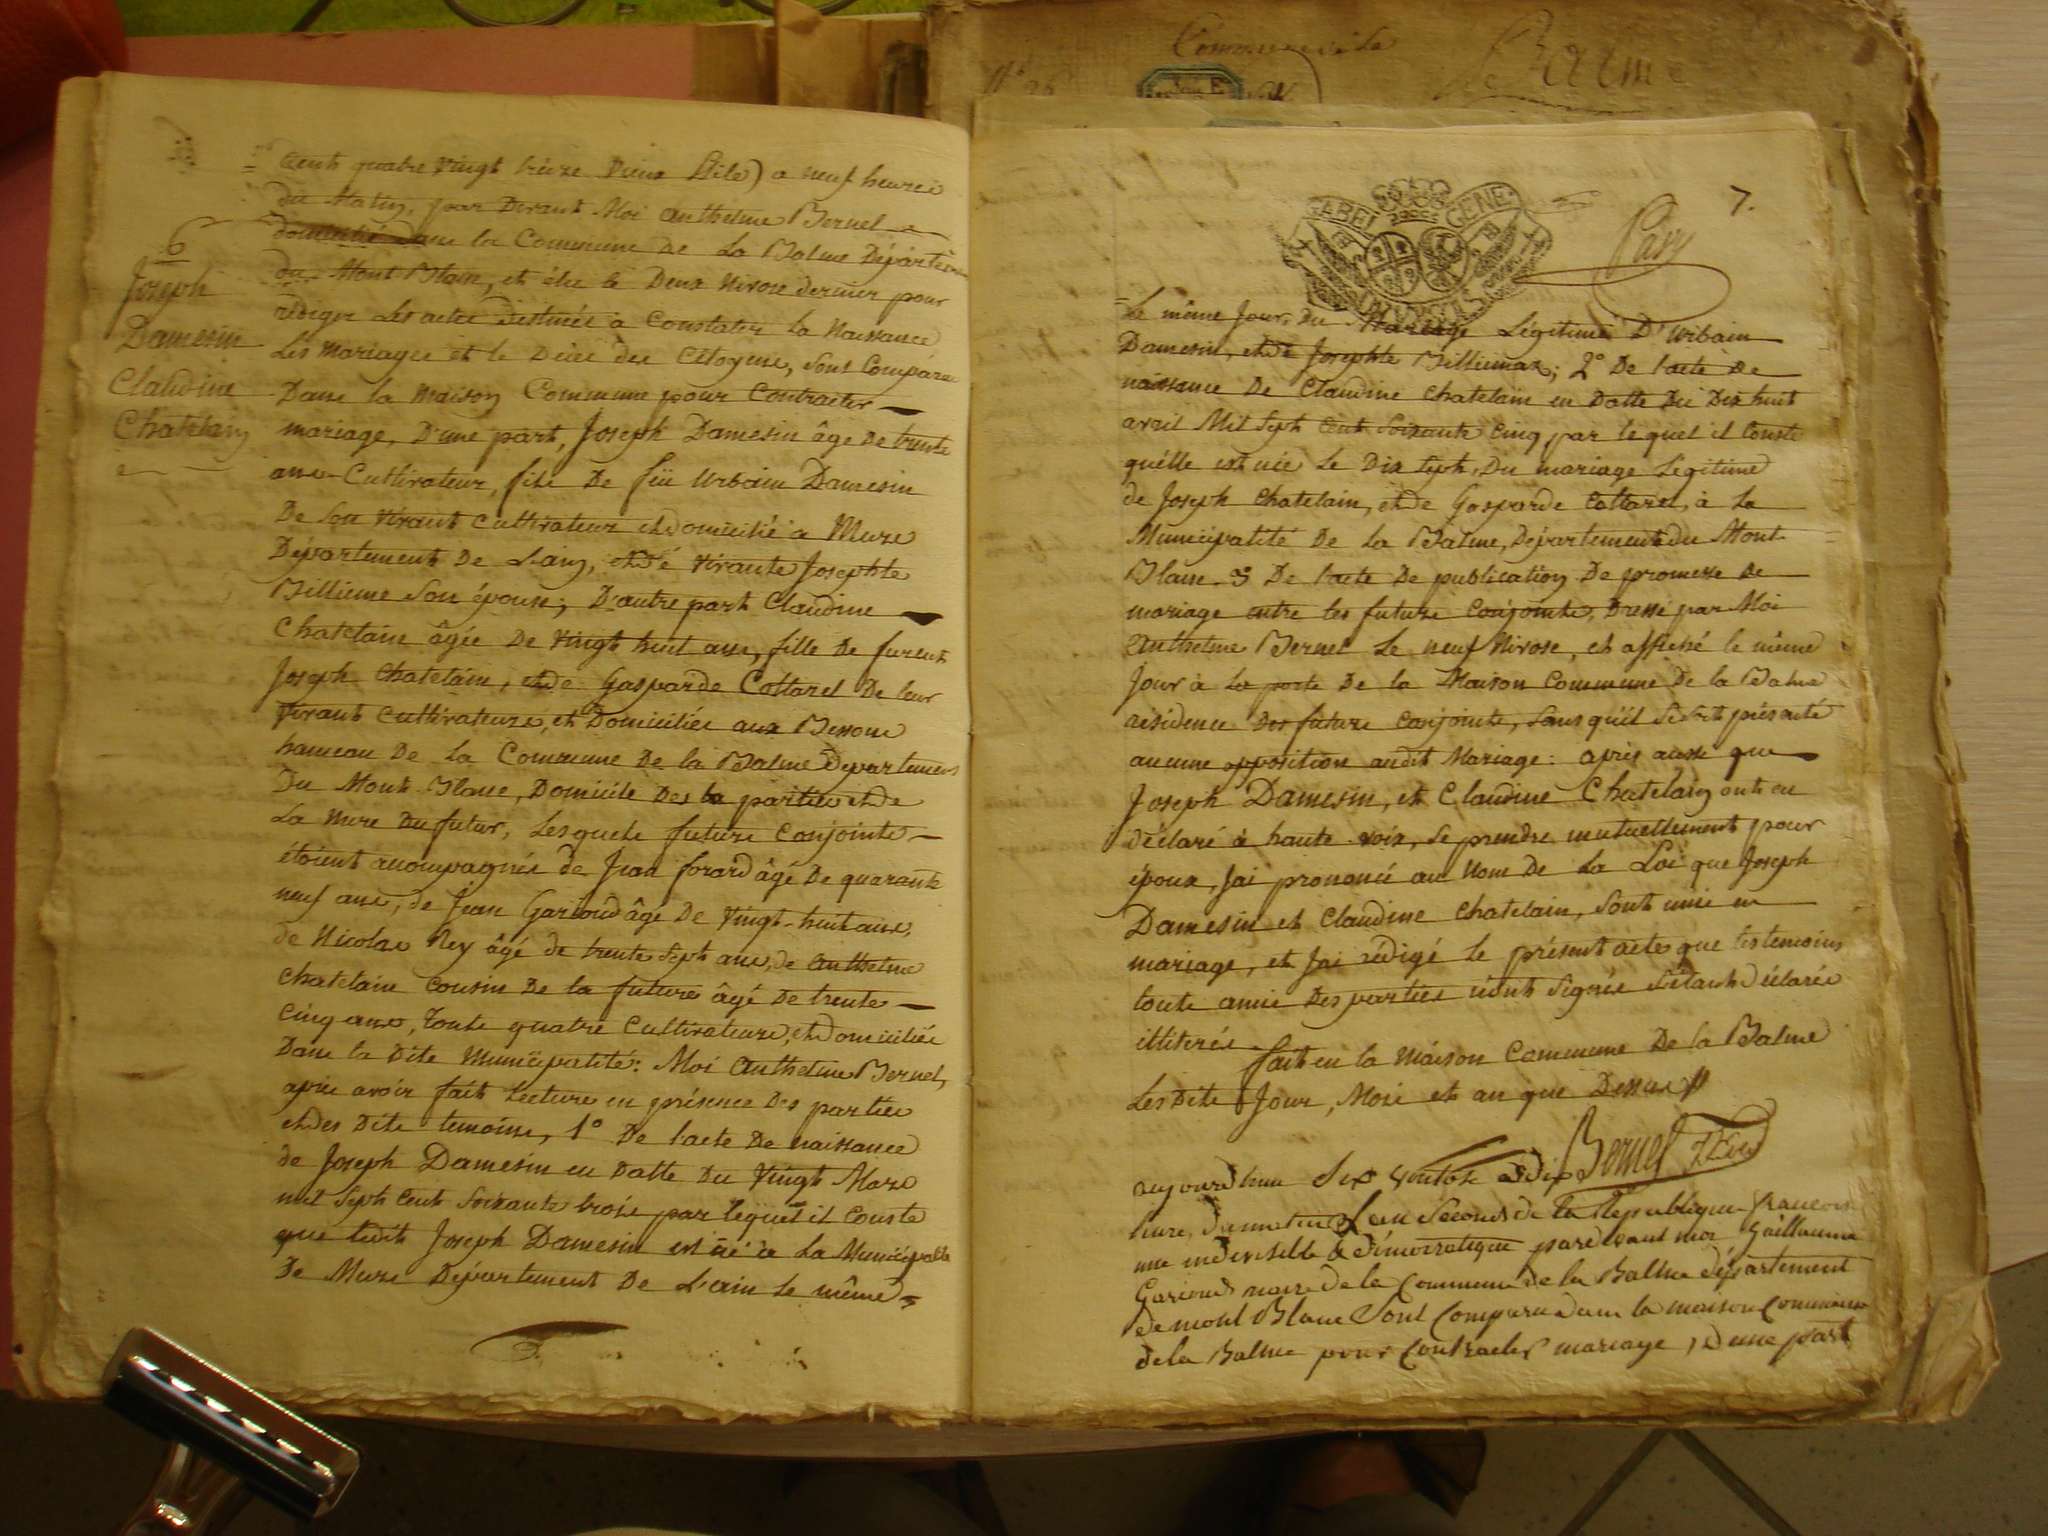 Commune de la
Balme
6
Joseph
Damesin
Claudine
Chatelain
Cent quatre vingt treize vieux Stile) a neuf heures
du Matin, par devant Moi Anthelme Bernel
domicilié dans la Commune de La Balme Département
du Mont Blanc, et élu le Deux Nivose dernier pour
rédiger Les actes destinés a Constater La Naissance
Les Mariages et le Décès des Citoyens, sont Comparus
Dans la Maison Commune pour Contracter
mariage, D'une part, Joseph Damesin âge De trente
ans Cultivateur, fils De feü Urbain Damesin
De son vivant Cultivateur et domicilié a Murs
Département De L'ain, et de vivante Josephte
Billieme Son épouse; D'autre part Claudine
Chatelain âgée De vingt huit ans, fille De furent
Joseph Chatelain, et de Gasparde Cottarel De leur
vivant Cultivateurs, et Domiciliés aux Bessons
hameau De La Commune De la Balme Département
Du Mont Blanc, Domicile Des parties et de
La Mere Du futur, Lesquels futurs Conjoints
étoient acompagnés de Jean forard âgé De quarante
neuf ans, de Jean Gariond âgé De Vingt-huit ans,
de Nicolas Rey âgé de trente sept ans, de Anthelme
Chatelain Cousin De la future âgé De trente
Cinq ans, touts quatre Cultivateurs, et domiciliés
Dans la Dite Municipalité: Moi Anthelme Bernel,
après avoir fait Lecture en présence Des parties
et des Dits temoins, 1° De l'acte De naissance
de Joseph Damesin en Datte Du Vingt Mars
mil Sept Cent Soixante trois par lequel il Conste
que ledit Joseph Damesin est né à La Municipalité
De Murs Département De L'ain le même
7.
Le même Jour, Du Mariage Légitime D'Urbain
Damesin, et de Josephte Billiemaz; 2° De l'acte De
naissance De Claudine Chatelain en Datte Du Dix huit
avril Mil Sept Cent Soixante Cinq par lequel il Conste
quélle est née Le Dix Sept, Du mariage Légitime
de Joseph Chatelain, et de Gasparde Cottarel, à La
Municipalité De La Balme, Département du Mont
Blanc. 3 De l'acte De publication De promesse De
mariage entre les futurs Conjoints, Dressé par Moi
Anthelme Bernel Le neuf Nivose, et affiché le même
Jour à La porte De la Maison Commune De la Balme
résidence Des futurs Conjoints, sans qu'il Se soit présenté
aucune opposition audit Mariage: après aussi que
Joseph Damesin, et Claudine Chatelain ont eu
déclaré à haute voix, Se prendre mutuellement pour
époux, J'ai prononcé au Nom De La Loi que Joseph
Damesin et Claudine Chatelain, Sont unis en
mariage, et J'ai rédigé Le présent acte que les temoins
touts amis Des parties n'ont Signés S'étant Déclarés
illiterés. fait en la Maison Commune De la Balme
Les Dits Jour, Mois et an que Dessus
Bernel
aujourdhuy Six Ventose a dix
heure, du matin L'an Second de la Republique francoise
une indivisible & démocratique pardevant moi Guillaume
Gariond maire de la Commune de la Balme département
de mont Blanc Sont Comparu dans la maison Commune
de la Balme pour Contracter mariage, dune part